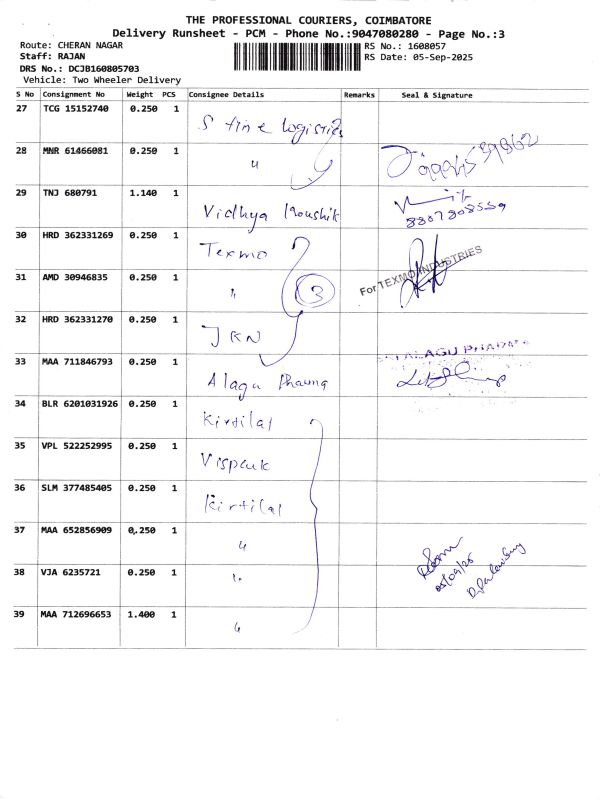 THE PROFESSIONAL COURIERS, COIMBATORE
Delivery Runsheet - PCM - Phone No.:9047080280 - Page No.:3
Route: CHERAN NAGAR
RS No.: 1608057
Staff: RAJAN
RS Date: 05-Sep-2025
DRS No.: DCJB160805703
Vehicle: Two Wheeler Delivery
S No Consignment No Weight PCS Consignee Details Remarks Seal & Signature
27 TCG 15152740 0.250 1 S tine logistics
28 MNR 61466081 0.250 1 "
29 TNJ 680791 1.140 1 Vidhya Koushik
8807808559
30 HRD 362331269 0.250 1 Texmo
For TEXMO INDUSTRIES
31 AMD 30946835 0.250 1 " 3
32 HRD 362331270 0.250 1 JKN
33 MAA 711846793 0.250 1 Alagu Pharma
ALAGU PHARMA
34 BLR 6201031926 0.250 1 Kirtilal
35 VPL 522252995 0.250 1
36 SLM 377485405 0.250 1 Kirtilal
37 MAA 652856909 0.250 1 "
05/09/25
38 VJA 6235721 0.250 1 "
39 MAA 712696653 1.400 1 "